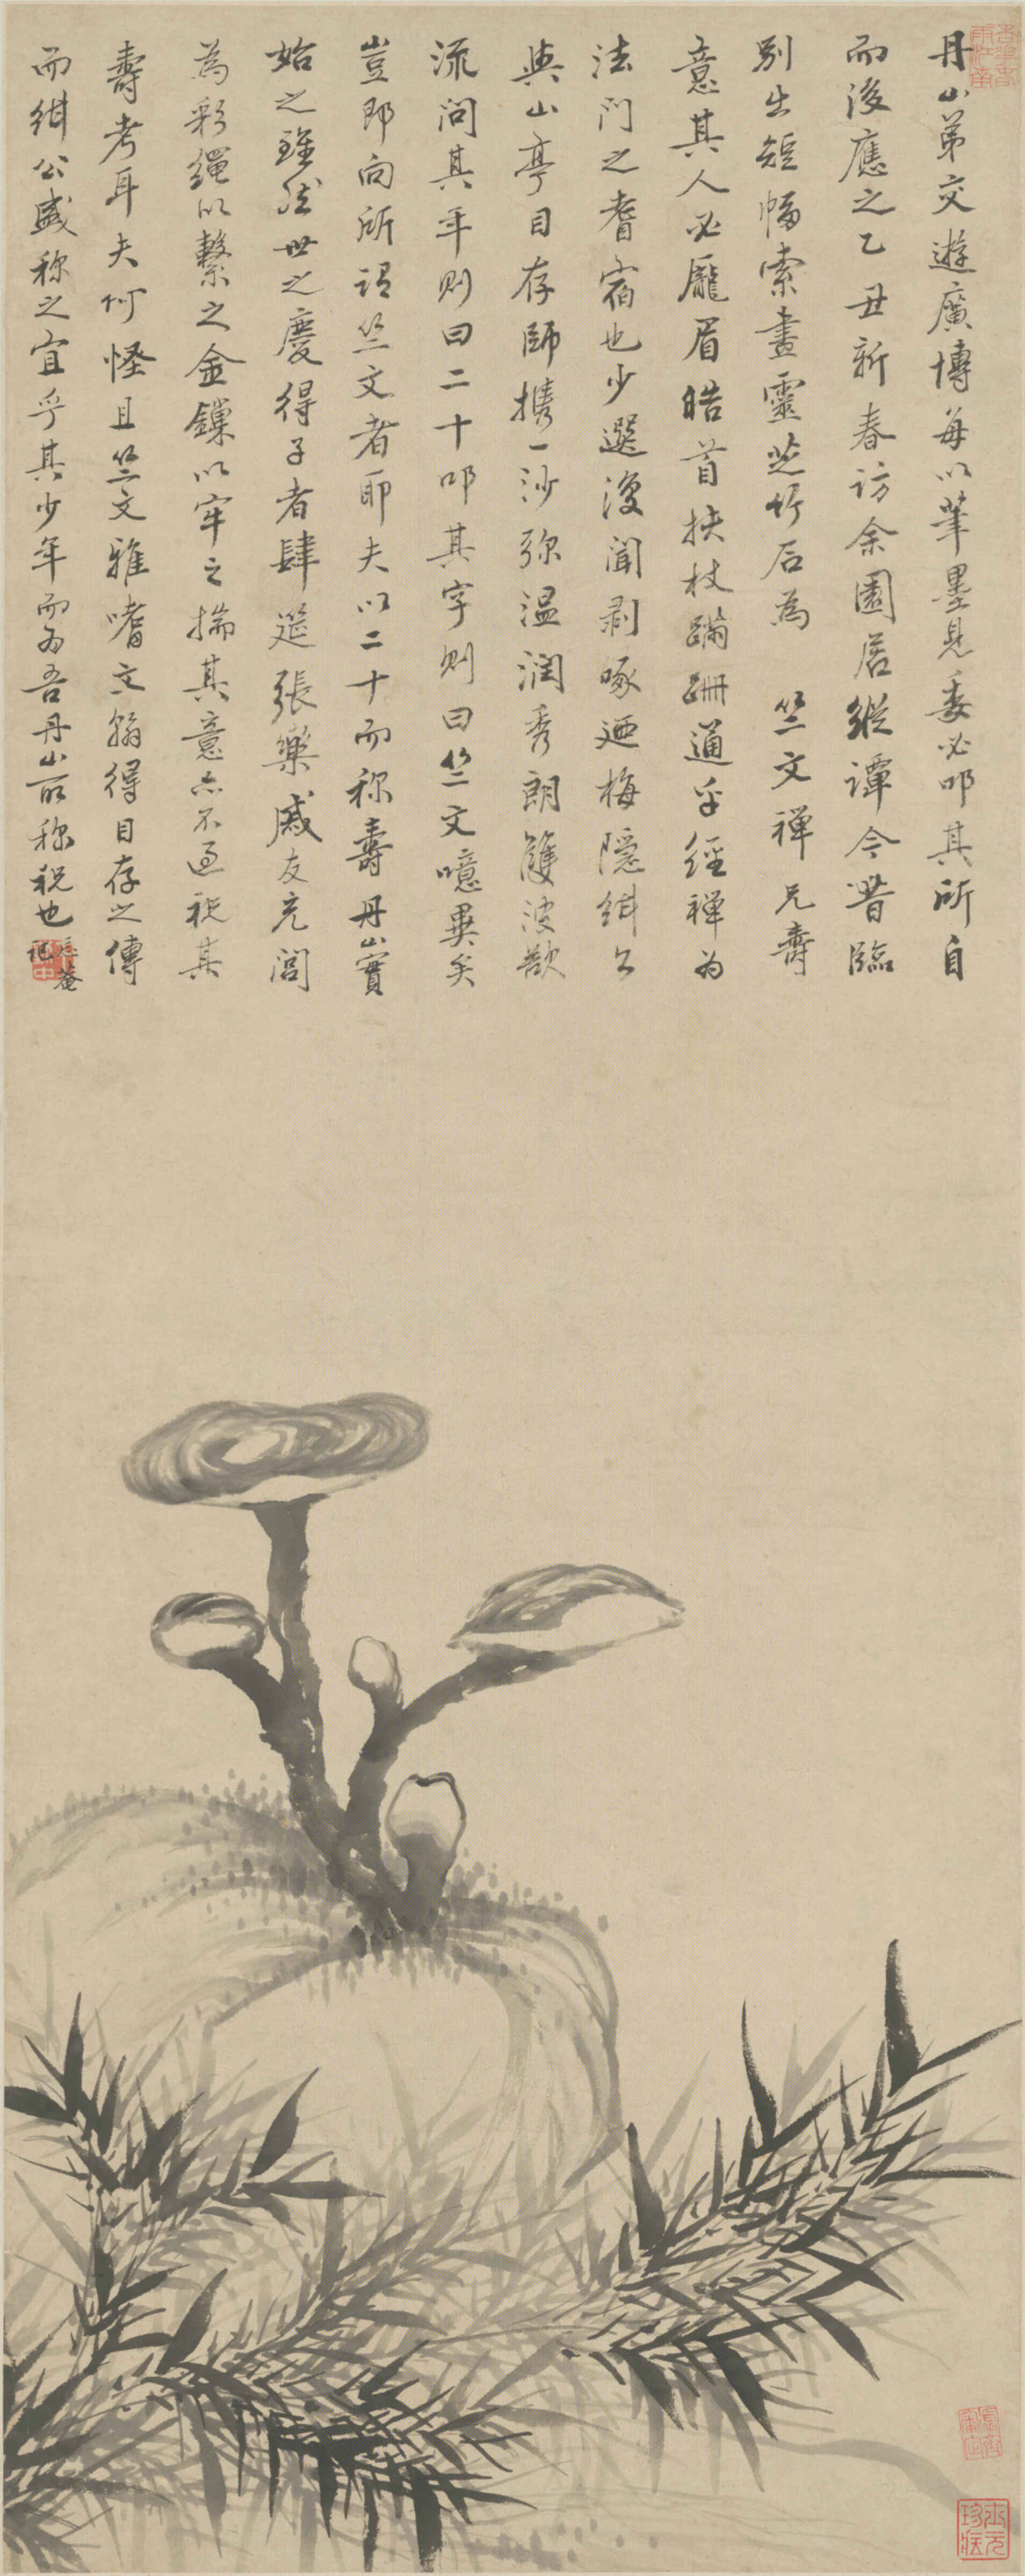 丹山弟交遊廣博每以筆墨見委必叩其所自
而後應之乙丑新春訪余園居縱譚今昔臨
別出短幅索畫靈芝竹石為竺文禪兄壽
意其人必龐眉皓首扶杖蹣跚通乎經禪為
法門之耆宿也少選復聞剥啄迺梅隱緝公
與山亭目存師攜一沙弥温潤秀朗雙波欲
流問其年則曰二十叩其字則曰竺文噫異矣
豈即向所謂竺文者耶夫以二十而称壽丹山實
始之雖然世之慶得子者肆筵張樂戚友充閭
為彩繩以繫之金鏁以牢之揣其意亦不過祝其
壽考耳夫何怪且竺文雅嗜文翰得目存之傳
而緝公盛称之宜乎其少年而為吾丹山所称祝也
菴記